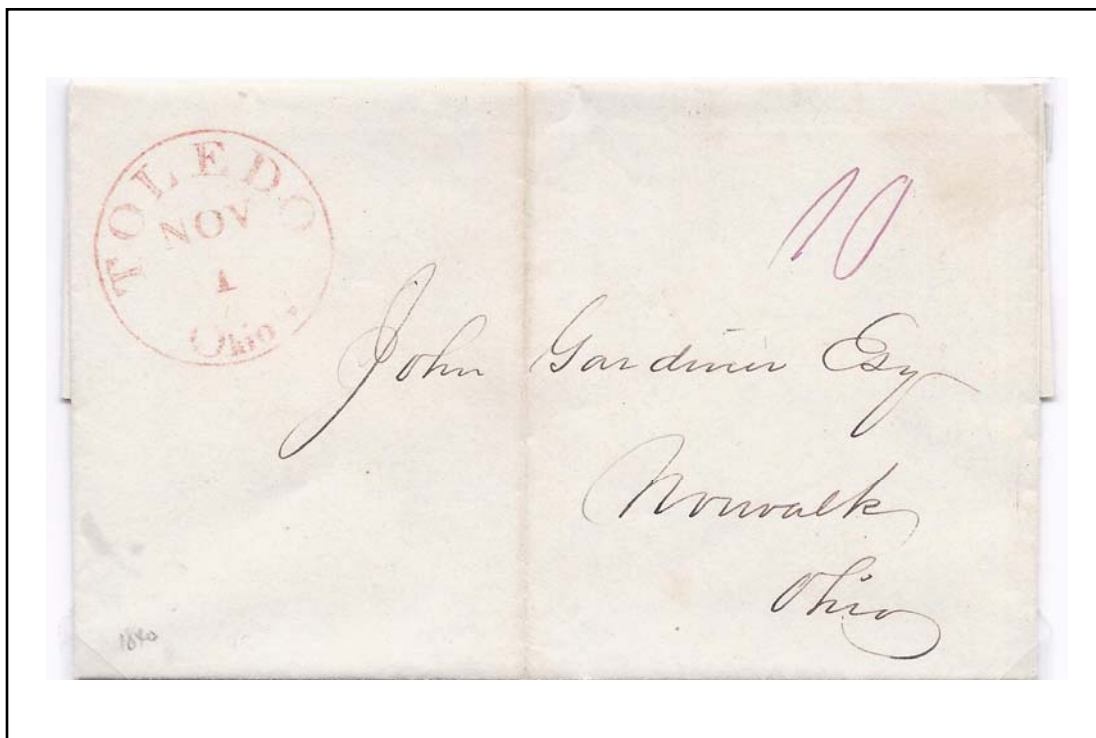 TOLEDO
NOV
1
Ohio
10
John Gardiner Esq
Norwalk
Ohio
1840